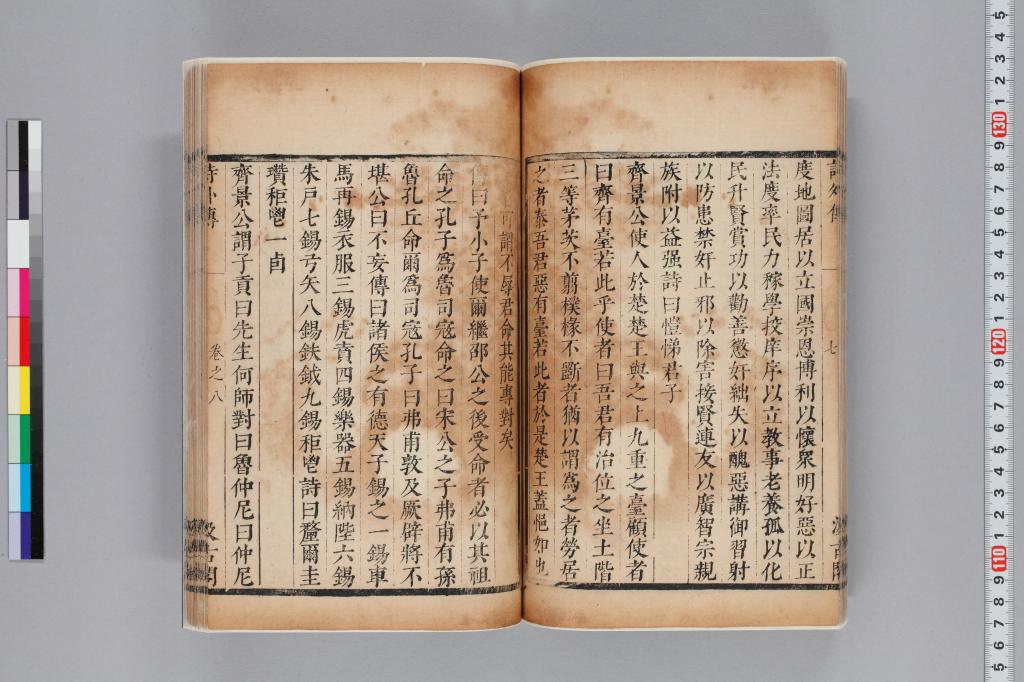 度地圖居以立國崇恩博利以懷衆明好惡以正
法度率民力稼學挍庠序以立教事老養孤以化
民升賢賞功以勸善懲奸絀失以醜惡講御習射
以防患禁奸止邪以除害接賢連友以廣智宗親
族附以益强詩曰愷悌君子
齊景公使人於楚楚王與之上九重之臺顧使者
曰齊有臺若此乎使者曰吾君有治位之坐土階
三等茅茨不翦樸椽不斵者猶以謂爲之者勞居
之者泰吾君惡有臺若此者於是楚王蓋悒如也
可謂不辱君命其能專對矣
曰予小子使爾繼邵公之後受命者必以其祖
命之孔子爲魯司寇命之曰宋公之子弗甫有孫
魯孔丘命爾爲司寇孔子曰弗甫敦及厥辟將不
堪公曰不妄傳曰諸侯之有德天子錫之一錫車
馬再錫衣服三錫虎賁四錫樂器五錫納陛六錫
朱戸七錫弓矢八錫鈇鉞九錫秬鬯詩曰釐爾圭
瓚秬鬯一卣
齊景公謂子貢曰先生何師對曰魯仲尼曰仲尼
詩外傳
卷之八